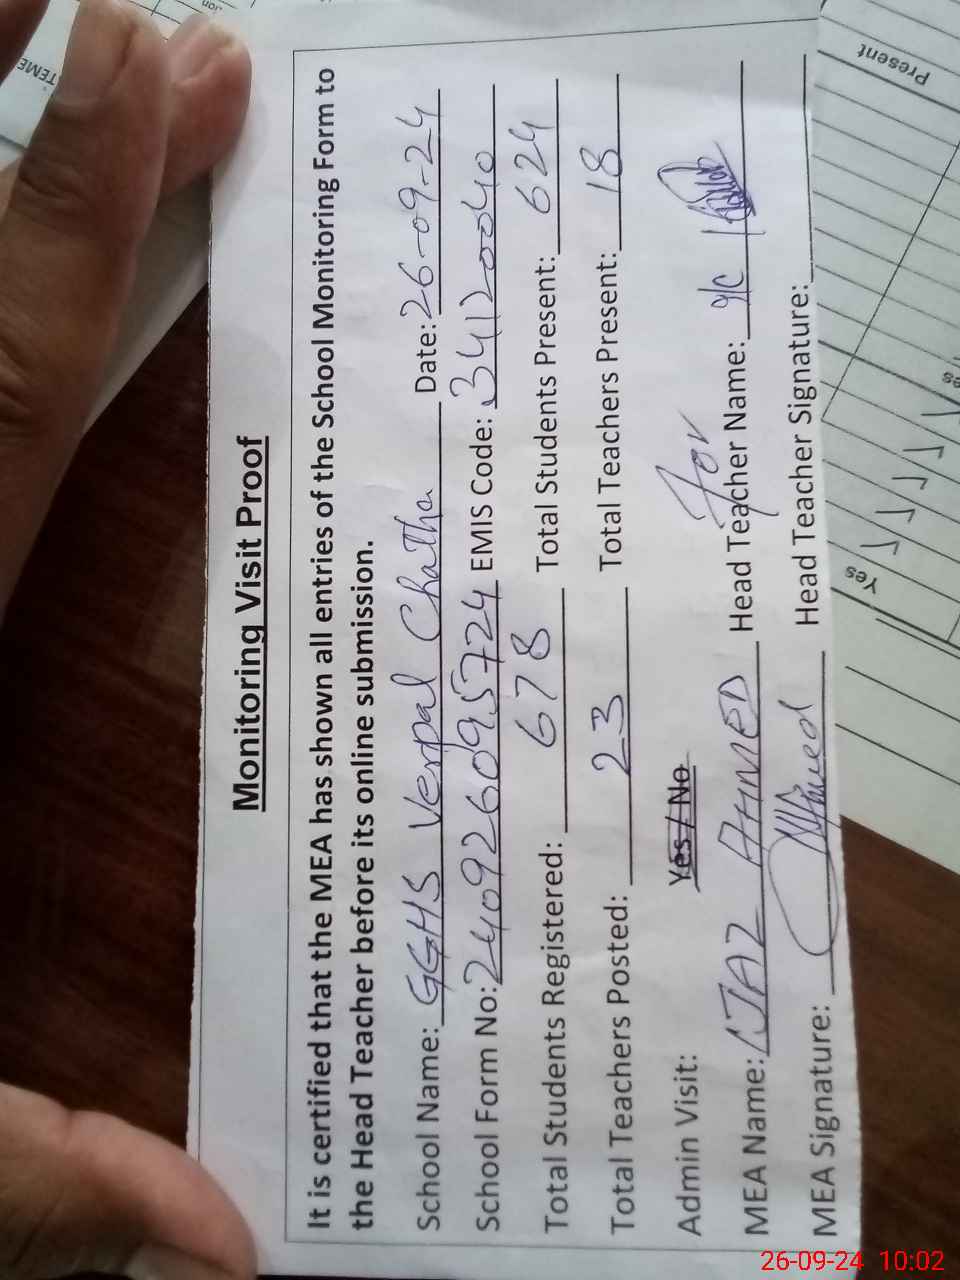 Monitoring Visit Proof
It is certified that the MEA has shown all entries of the School Monitoring Form to
the Head Teacher before its online submission.
School Name: GGHS Verpal Chatha Date: 26-09-24
School Form No: 240926095724 EMIS Code: 34120040
Total Students Registered: 678 Total Students Present: 624
Total Teachers Posted: 23 Total Teachers Present: 18
Admin Visit: Yes / No For
MEA Name: IJAZ AHMED Head Teacher Name: I/C
MEA Signature: Head Teacher Signature:
Present
Yes
26-09-24 10:02